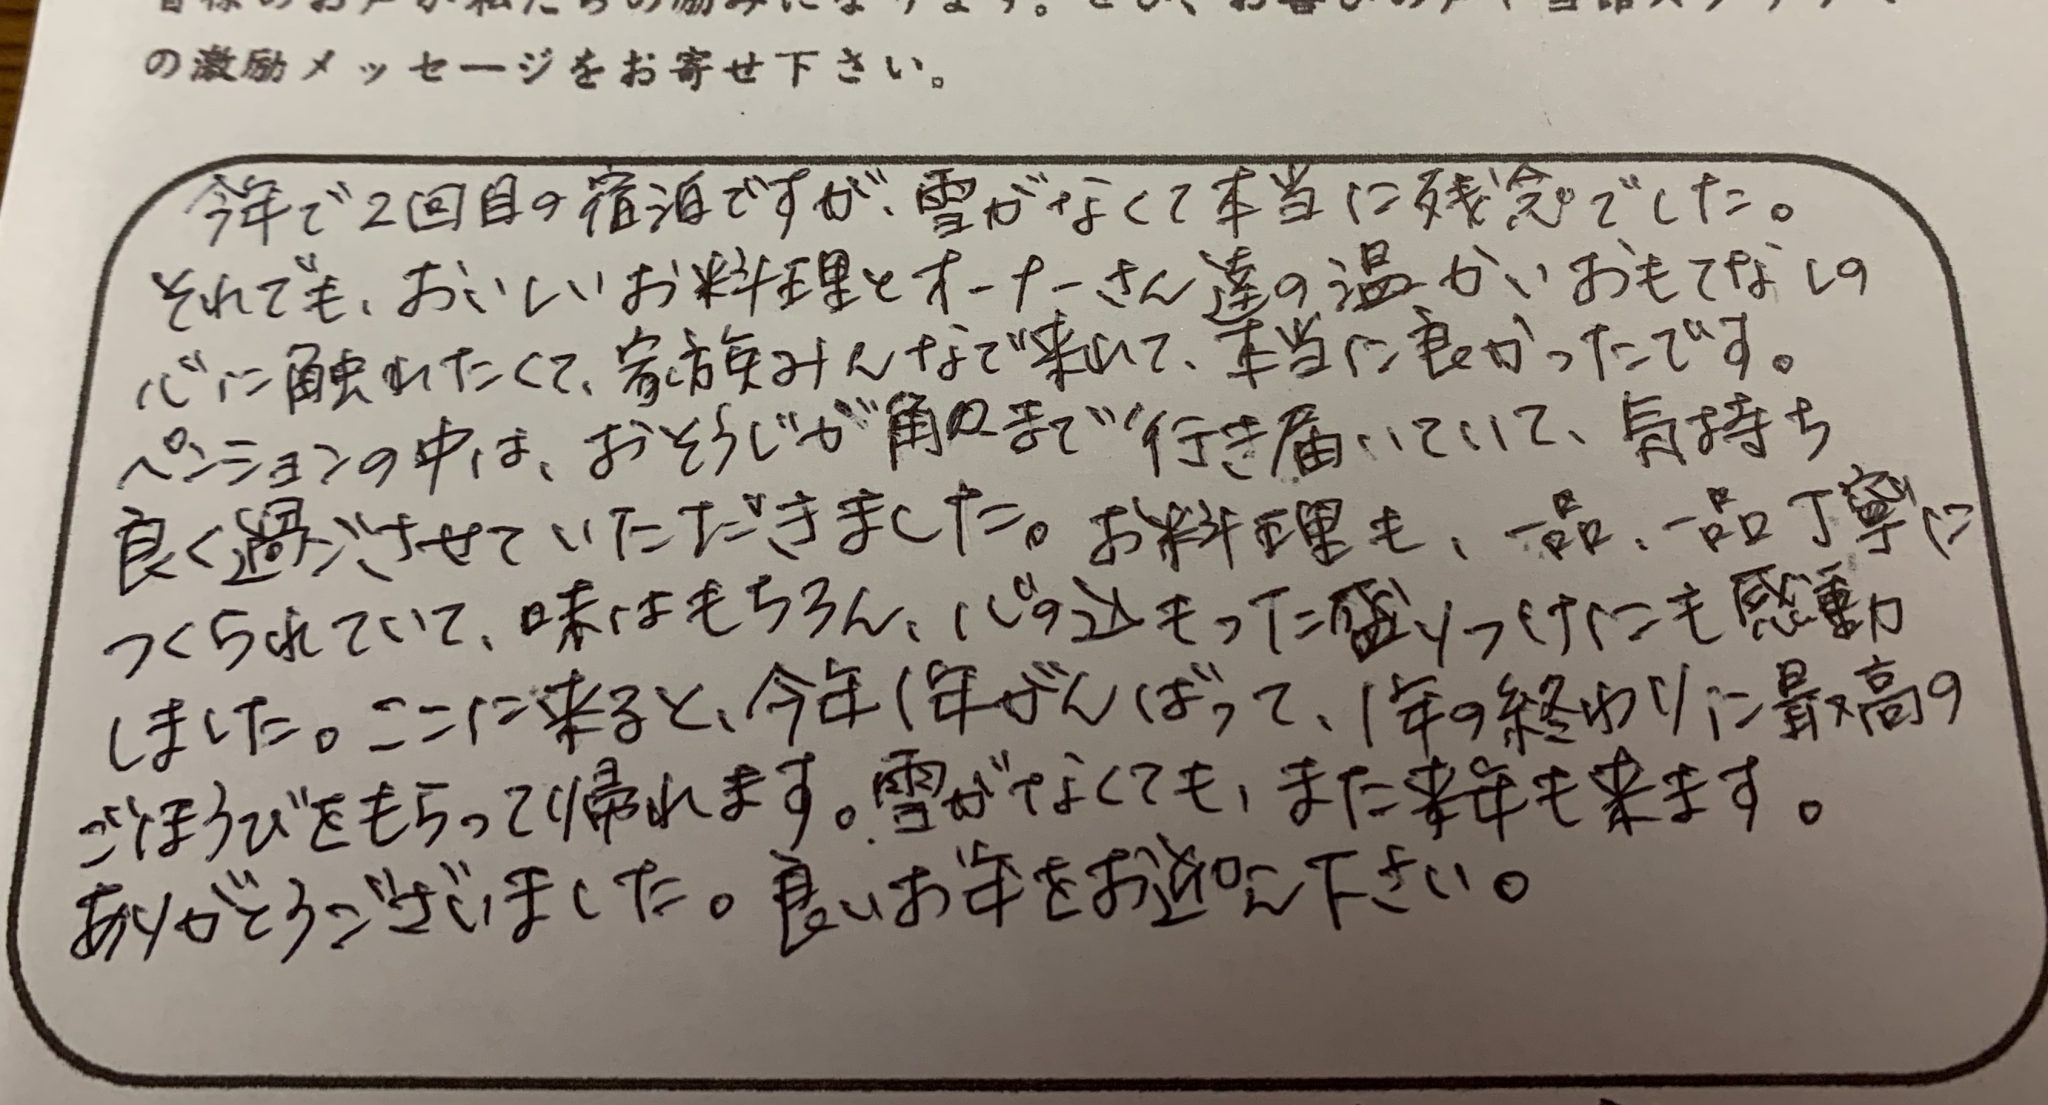 の激励メッセージをお寄せ下さい。
今年で2回目の宿泊ですが、雪がなくて本当に残念でした。
それでも、おいしいお料理とオーナーさん達の温かいおもてなしの
心に触れたくて、家族みんなで来れて、本当に良かったです。
ペンションの中は、おそうじが角口まで行き届いていて、気持ち
良く過ごさせていただきました。お料理も、一品、一品丁寧に
つくられていて、味はもちろん、心の込もった盛りつけにも感動
しました。ここに来ると、今年1年がんばって、1年の終わりに最高の
ごほうびをもらって帰れます。雪がなくても、また来年も来ます。
ありがとうございました。良いお年をお迎え下さい。